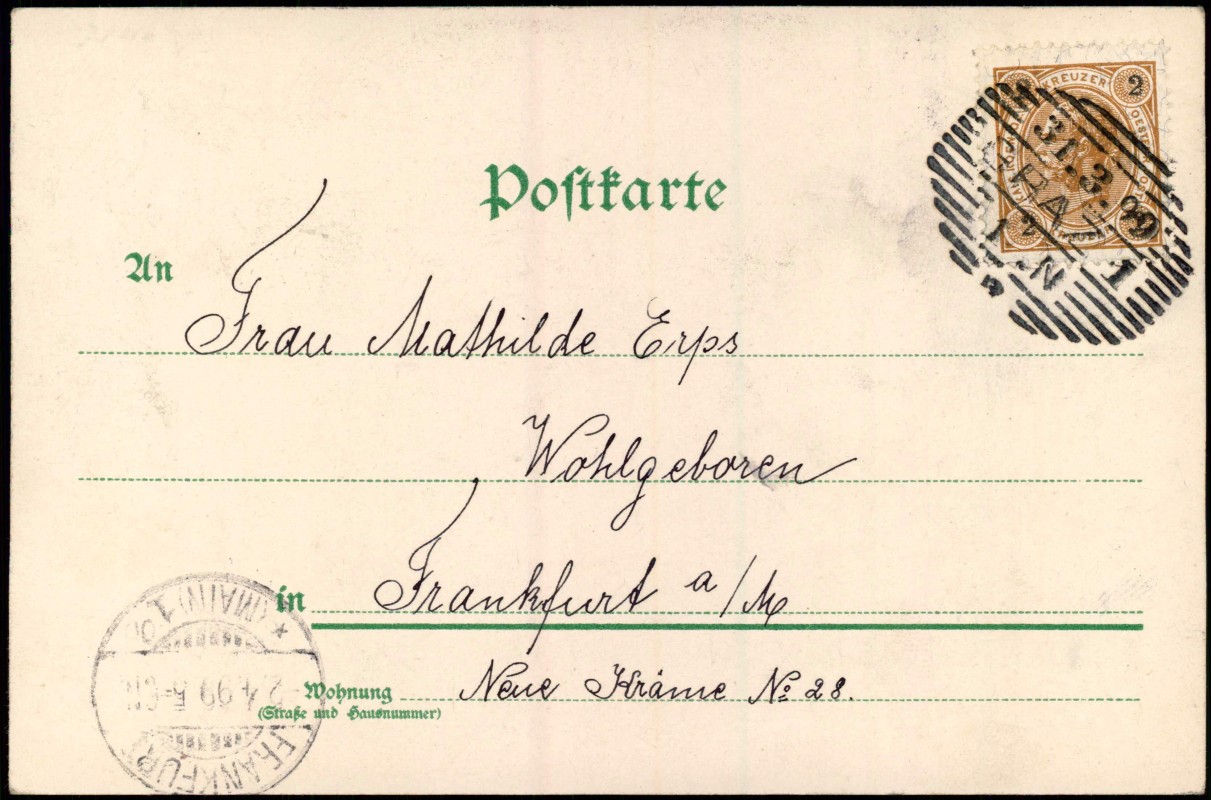 Postkarte
KREUZER 2
31.3.99
1
An
Frau Mathilde Erps
Wohlgeboren
in Frankfurt a/M
Wohnung Neue Kräme No 28.
(Straße und Hausnummer)
FRANKFURT
(MAIN) 1
2.4.99. 5-6N.